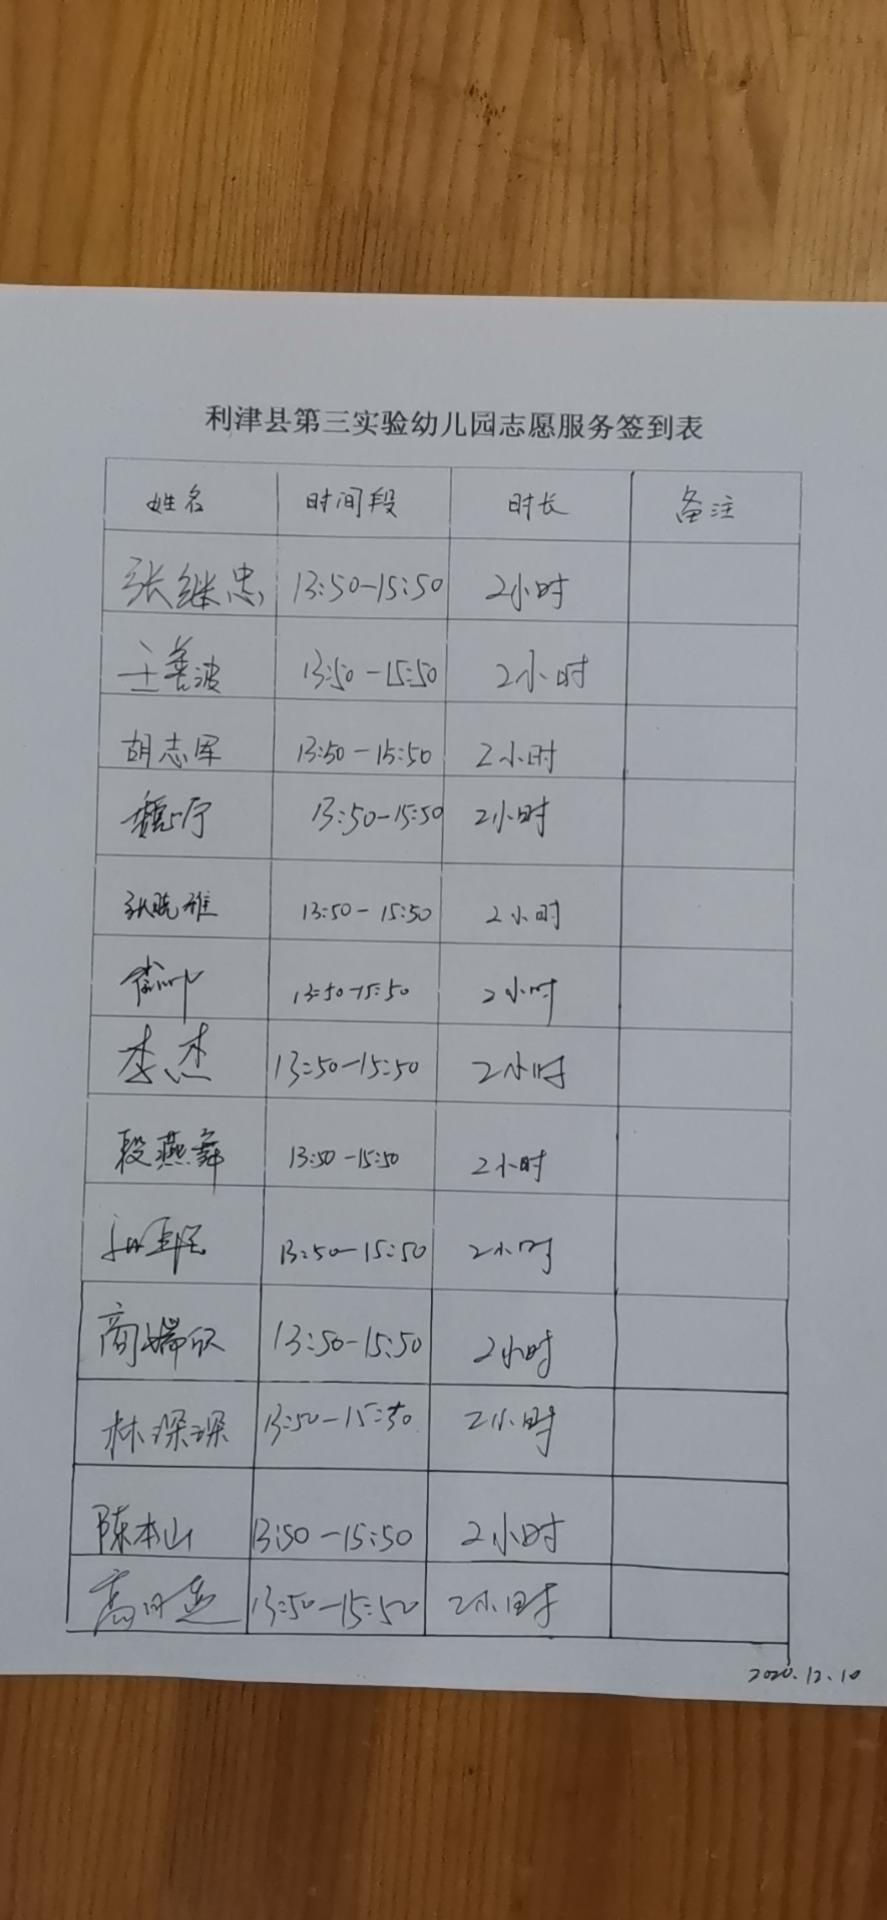 利津县第三实验幼儿园志愿服务签到表
姓名 时间段 时长 备注
张继忠 13:50-15:50 2小时
王善波 13:50-15:50 2小时
胡志军 13:50-15:50 2小时
13:50-15:50 2小时
张晓雅 13:50-15:50 2小时
13:50-15:50 2小时
李杰 13:50-15:50 2小时
段燕舞 13:50-15:50 2小时
13:50-15:50 2小时
商端欣 13:50-15:50 2小时
林深深 13:50-15:50 2小时
陈本山 13:50-15:50 2小时
高 13:50-15:50 2小时
2020.12.10